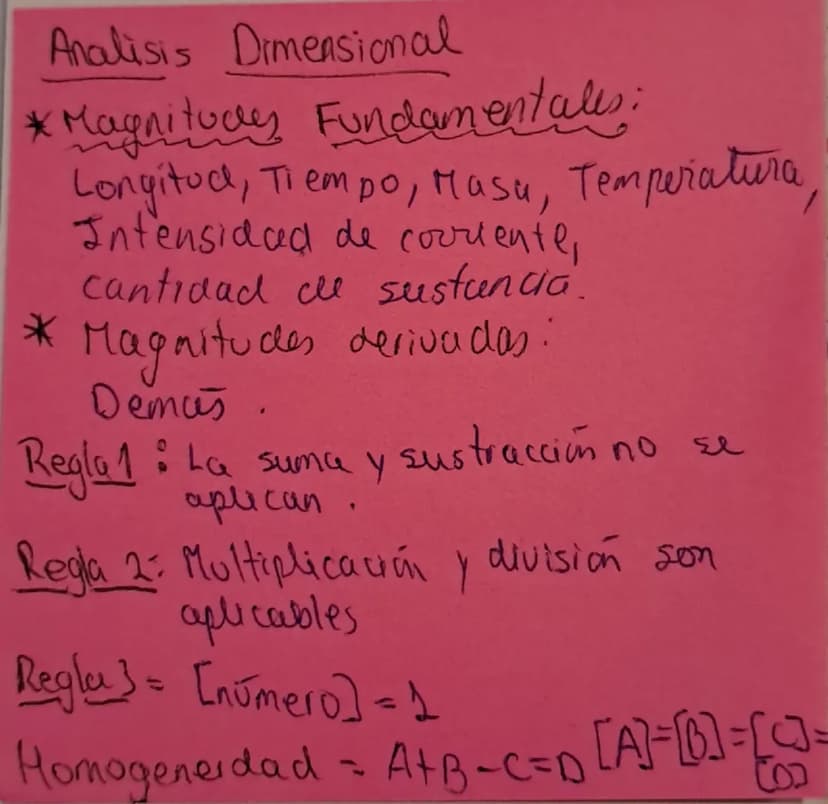 Analisis Dimensional
* Magnitudes Fundamentales:
Longitud, Tiempo, Masa, Temperatura,
Intensidad de corriente,
cantidad de sustancia.
* Magnitudes derivadas:
Demás.
Regla 1: La suma y sustracción no se
aplican.
Regla 2: Multiplicación y división son
aplicables
Regla 3 = [número] = 1
Homogeneidad = A+B-C=D [A]=[B]=[C]=
[D]